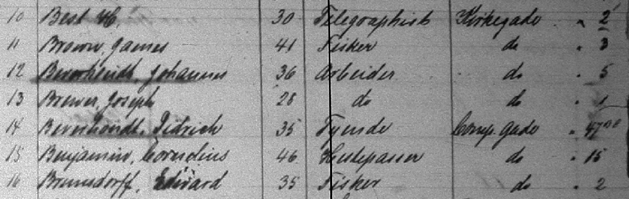 10 Best H. 30 Telegraphist Kirkegade " 2
11 Brown, James 41 Fisker do " 3
12 Beverhoudt, Johannes 36 Arbeider do " 5
13 Brewer, Joseph 28 do do " 1
14 Beverhoudt, Didrich 35 Tyende Comp. Gade "
15 Benjamin, Cornelius 46 Hestepasser do " 15
16 Brunsdorff, Edward 35 Fisker do " 2